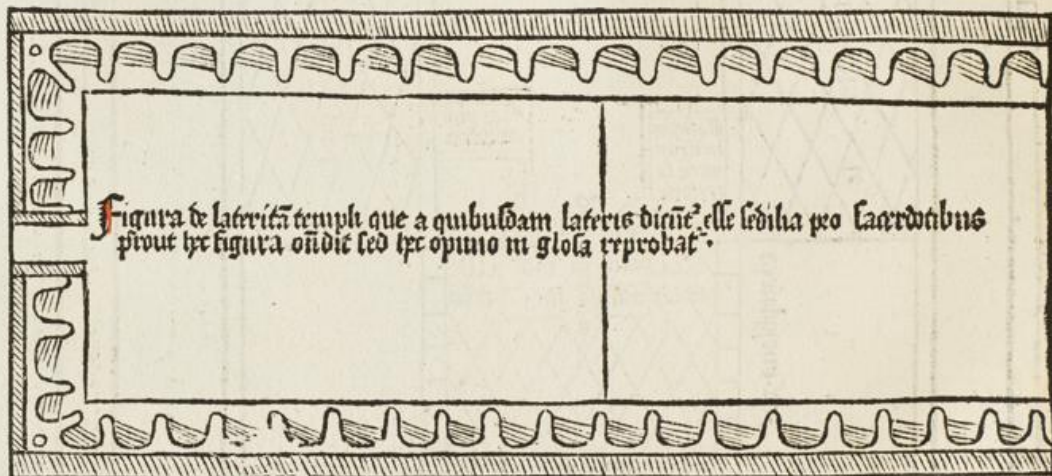 Figura de laterita᷑ templi que a quibusdam lateris dicu᷑t᷑ esse sedilia pro sacerdotibus
prout hec figura on᷑dit sed hec opinio in glosa reprobat᷑.